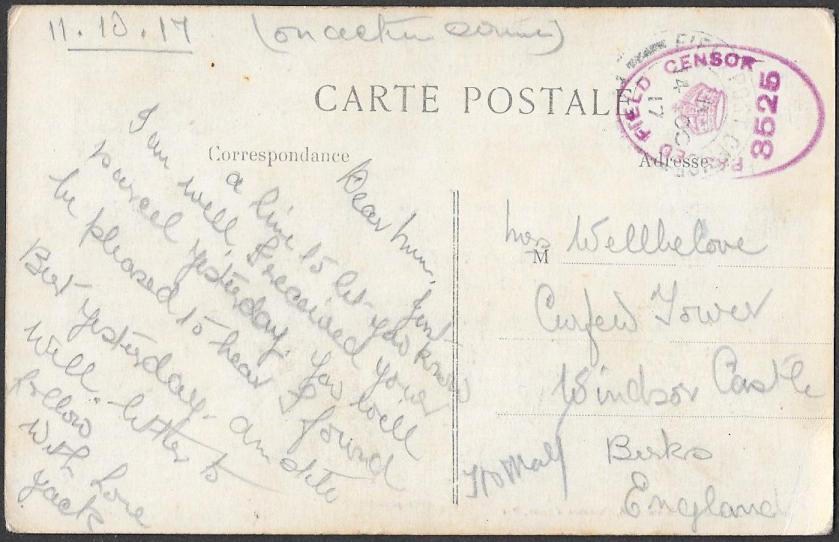 11.10.17 (on active service)
CARTE POSTALE
Correspondance
Adresse
PASSED FIELD CENSOR
3525
FIELD POST OFFICE
14 OC 17
Dear Mum, Just
a line to let you know
I am well, I received your
parcel yesterday. You will
be pleased to hear I found
Bert yesterday. am quite
well. letter to
follow
With love
Jack
M
Mrs Wellbelove
Curfew Tower
Windsor Castle
Berks
England